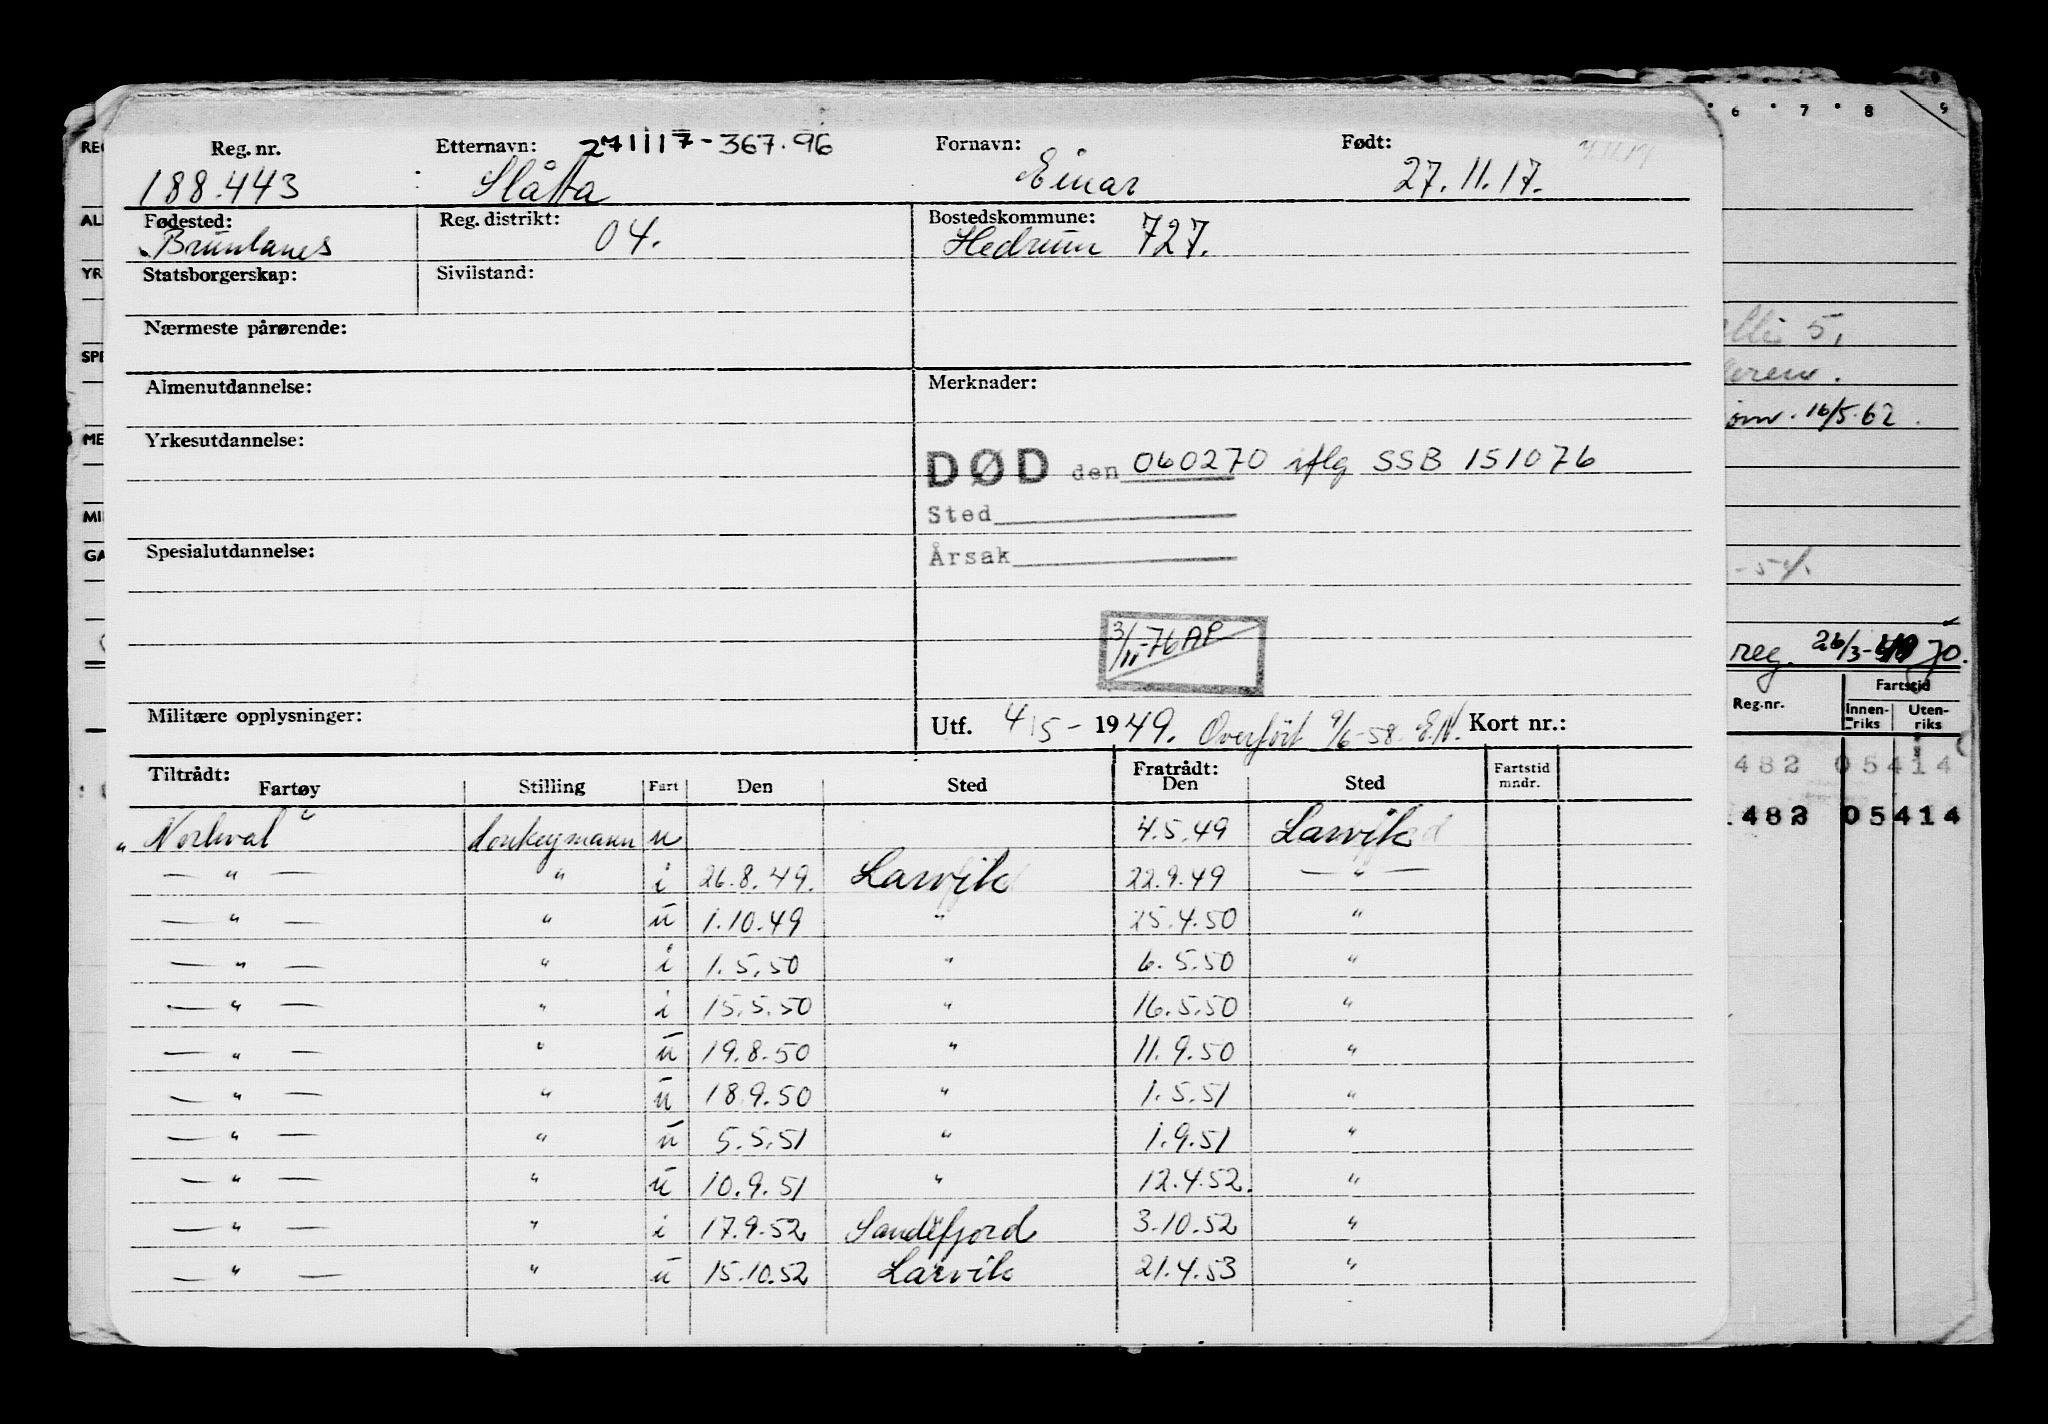 Reg. nr. Etternavn: 271117-367.96 Fornavn: Født:
188.443 Slåtta Einar 27.11.17.
Fødested: Reg. distrikt: 04. Bostedskommune: 727.
Brunlanes Hedrum
Statsborgerskap: Sivilstand:
Nærmeste pårørende:
Almenutdannelse: Merknader:
Yrkesutdannelse:
DØD den 060270 iflg SSB 151076
Sted
Spesialutdannelse: Årsak
3/11-76 AP
Militære opplysninger: Utf. 4/5-1949. Overført 9/6-58. E.N. Kort nr.:
Tiltrådt: Fratrådt:
Fartøy Stilling Fart Den Sted Den Sted Fartstid mndr.
"Norhval" donkeymann u 4.5.49 Larvik
— " — " i 26.8.49. Larvik 22.9.49 — " —
— " — " u 1.10.49 " 25.4.50 "
— " — " i 1.5.50 " 6.5.50 "
— " — " i 15.5.50 " 16.5.50 "
— " — " u 19.8.50 " 11.9.50 "
— " — " u 18.9.50 " 1.5.51 "
— " — " u 5.5.51 " 1.9.51 "
— " — " u 10.9.51 " 12.4.52. "
— " — " i 17.9.52 Sandefjord 3.10.52 "
— " — " u 15.10.52 Larvik 21.4.53 "
6 7 8 9
REG
AL
YR
SPE
ME
MI
GA
5.
16/5.62.
reg. 26/3- 70.
Fartstid
Reg.nr. Innen-riks Uten-riks
482 05414
.482 05414